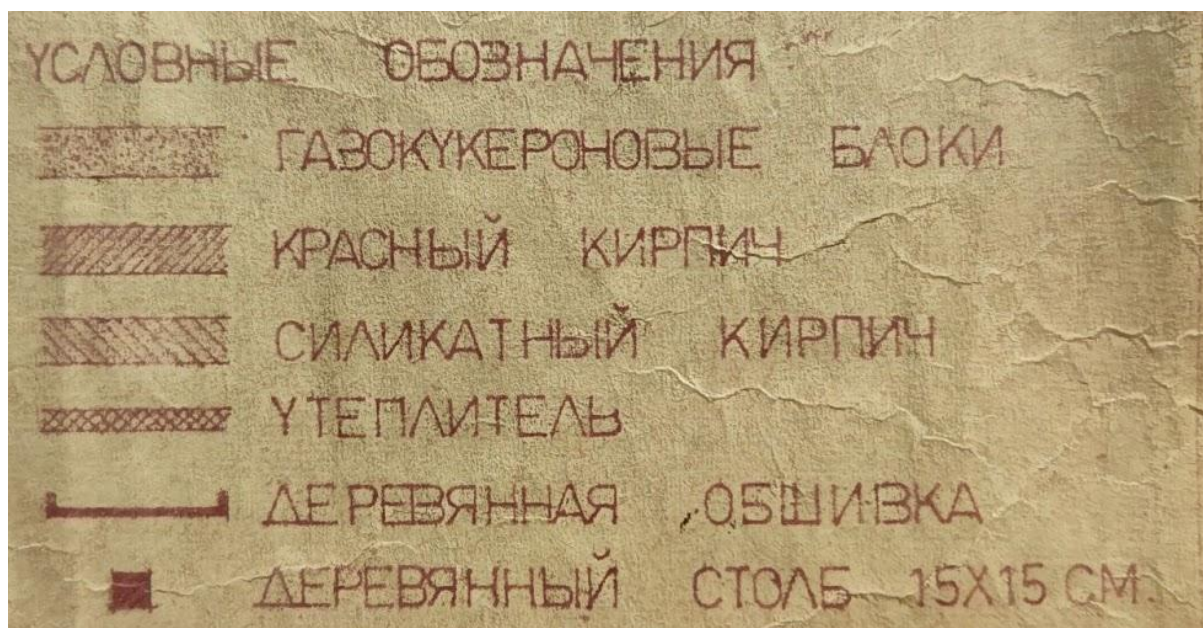 УСЛОВНЫЕ ОБОЗНАЧЕНИЯ
ГАЗОКУКЕРОНОВЫЕ БЛОКИ
КРАСНЫЙ КИРПИЧ
СИЛИКАТНЫЙ КИРПИЧ
УТЕПЛИТЕЛЬ
ДЕРЕВЯННАЯ ОБШИВКА
ДЕРЕВЯННЫЙ СТОЛБ 15X15 СМ.